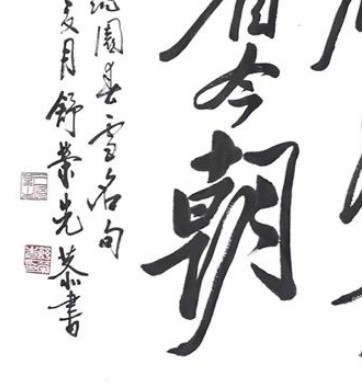 看今朝
沁園春雪名句
夏月舒榮先恭書